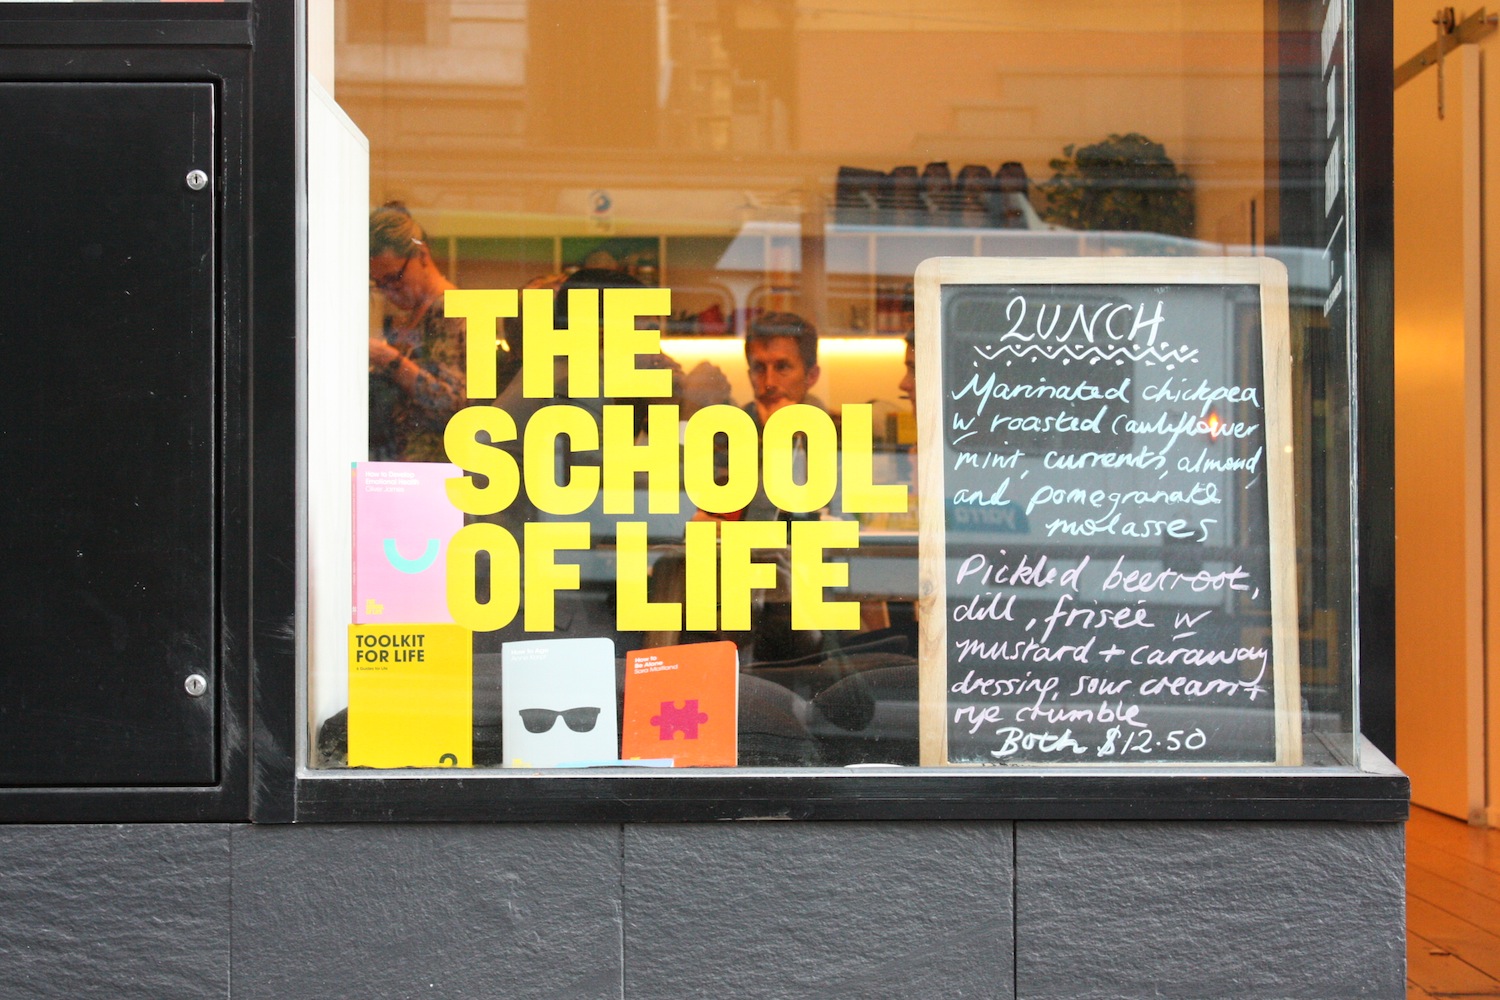 THE
SCHOOL
OF LIFE
How to Develop
Emotional Health
Oliver James
TOOLKIT
FOR LIFE
How to Age
How to
Be Alone
Sara Maitland
LUNCH
Marinated chickpea
w roasted cauliflower
mint, currents, almond,
and pomegranate
molasses
Pickled beetroot,
dill, friseé w
mustard + caraway
dressing, sour cream +
rye crumble
Both $12.50